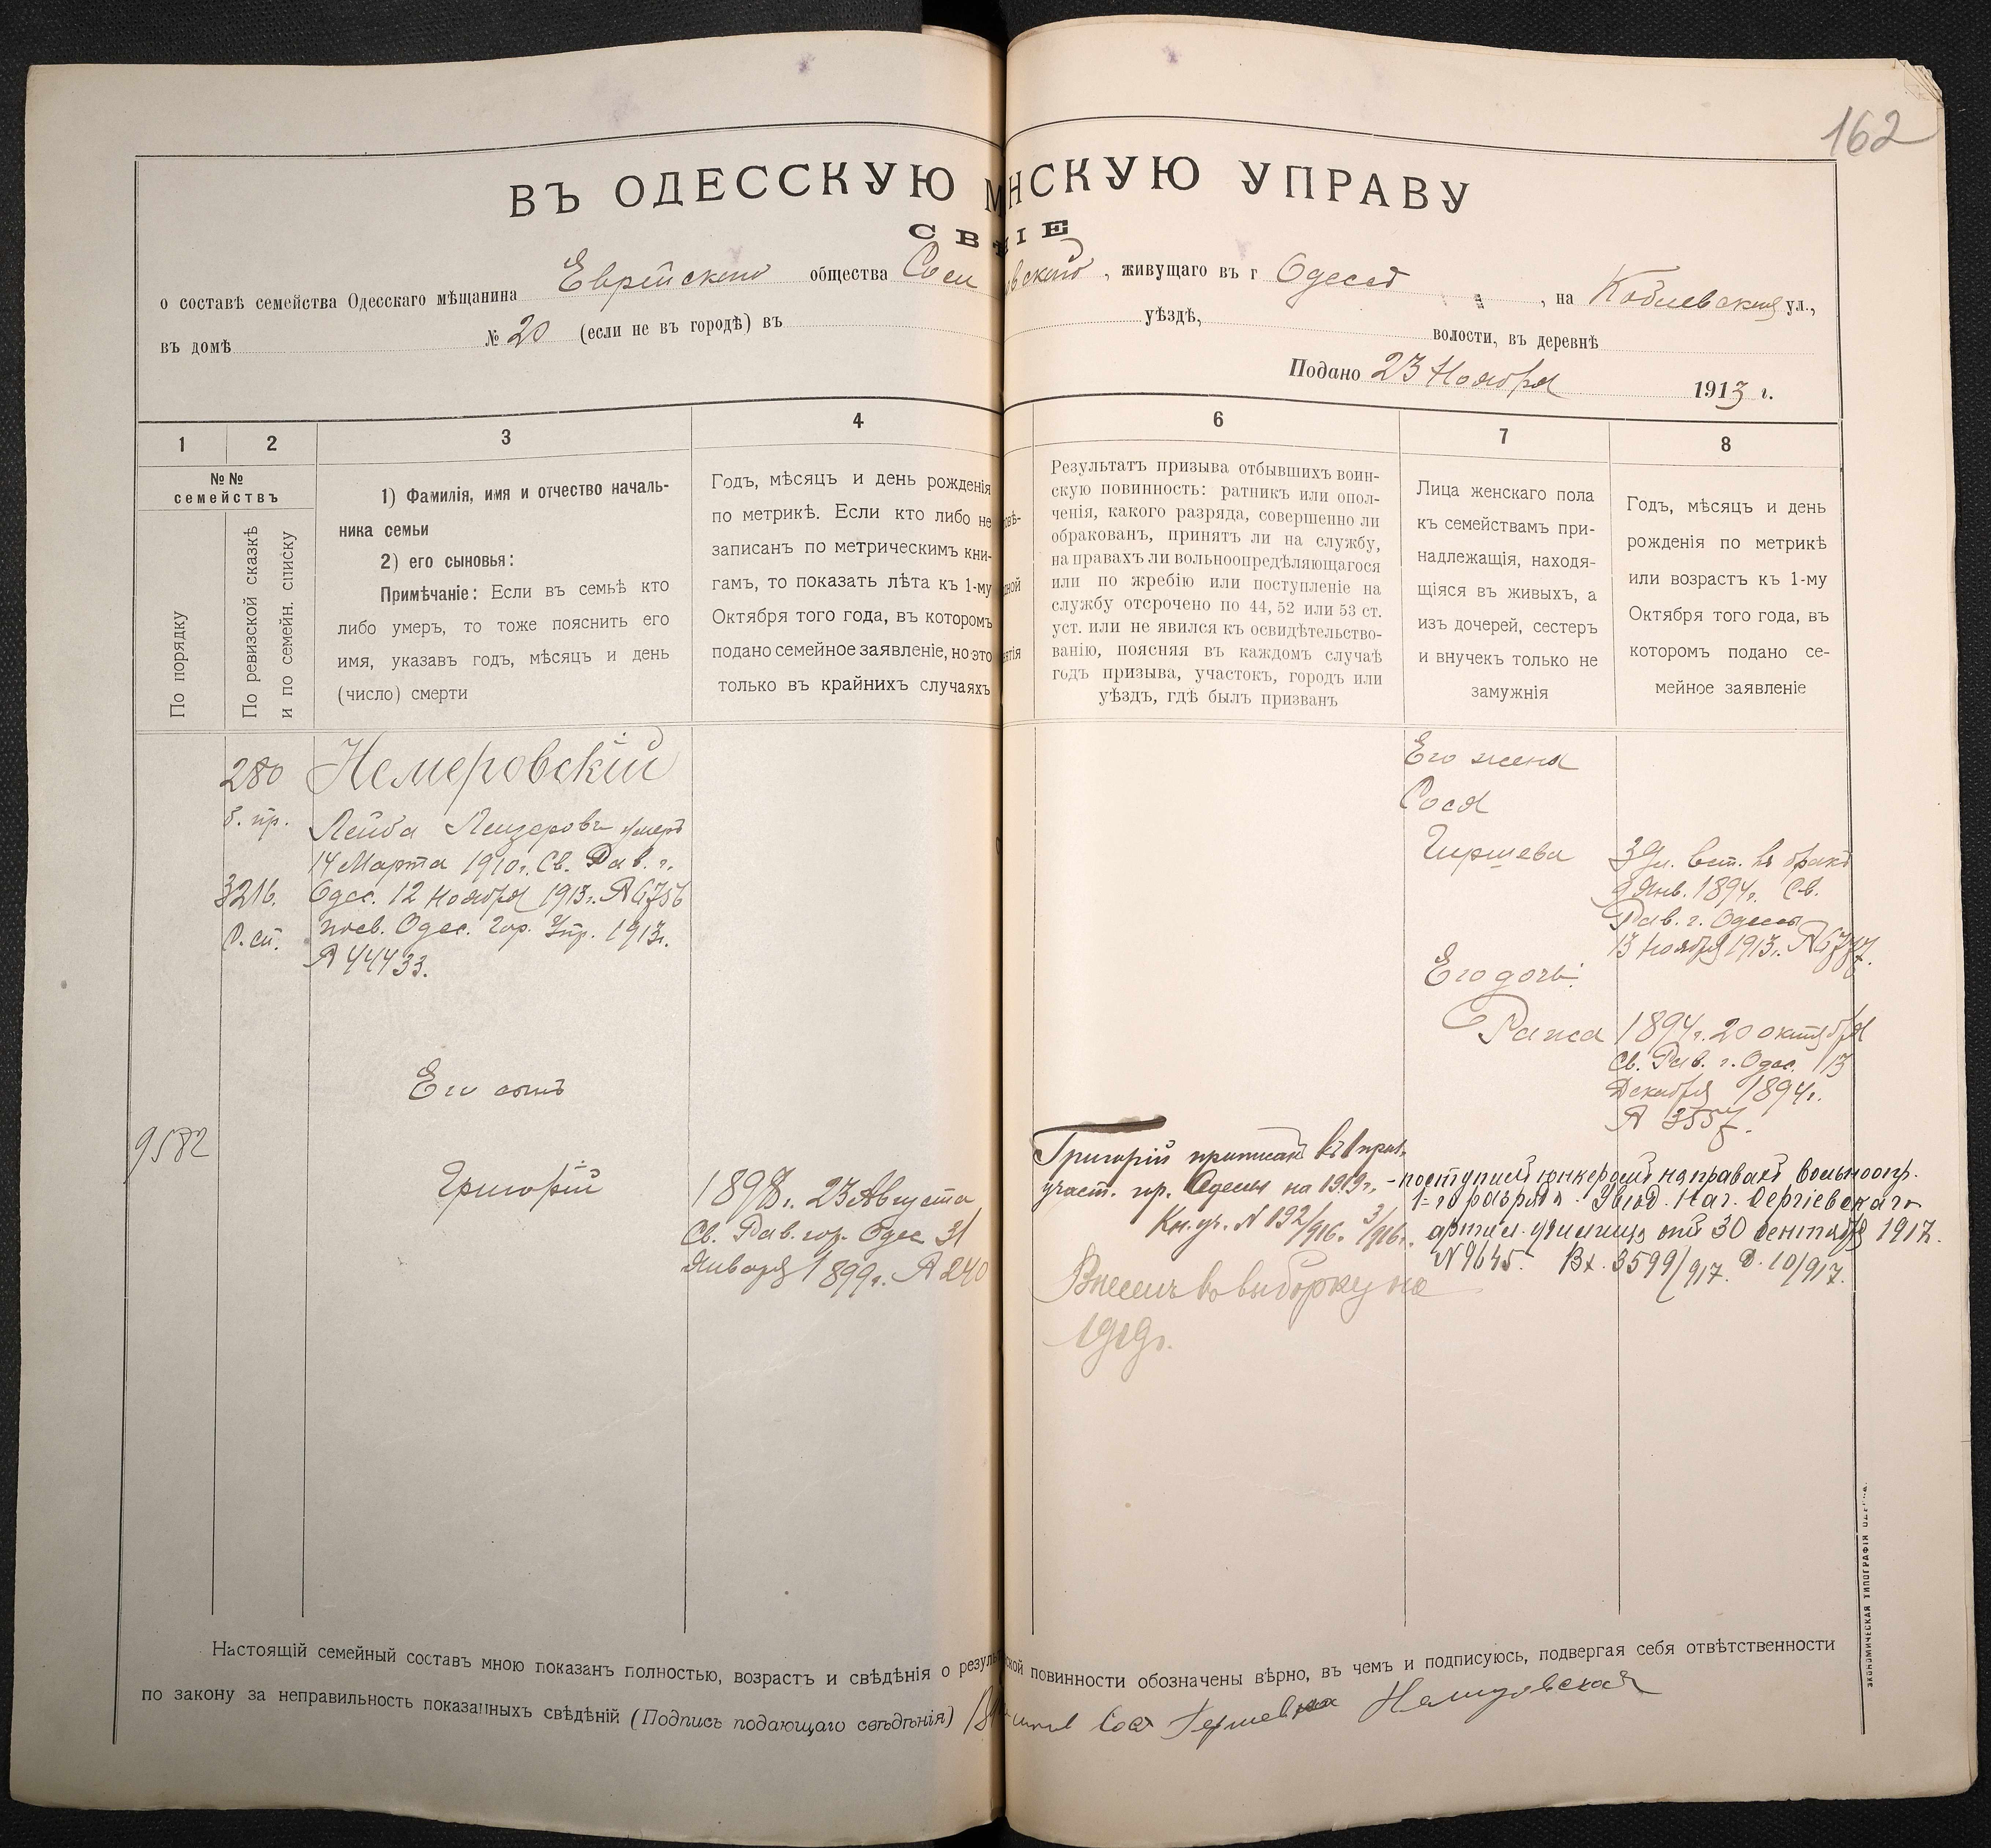 162
ВЪ ОДЕССКУЮ М НСКУЮ УПРАВУ
СВ ІЕ
о составѣ семейства Одесскаго мѣщанина Еврейскаго общества , живущаго въ г Одессѣ , на Кобlевской ул.,
въ домѣ № 20 (если не въ городѣ) въ уѣздѣ, волости, въ деревнѣ
Подано 23 Ноября 1913 г.
1
2
3
4
6
7
8
№№
семействъ
По порядку
По ревизской сказкѣ
и по семейн. списку
1) Фамилія, имя и отчество началь-
ника семьи
2) его сыновья:
Примѣчаніе: Если въ семьѣ кто
либо умеръ, то тоже пояснить его
имя, указавъ годъ, мѣсяцъ и день
(число) смерти
Годъ, мѣсяцъ и день рожденія
по метрикѣ. Если кто либо не
записанъ по метрическимъ кни-
гамъ, то показать лѣта къ 1-му
Октября того года, въ которомъ
подано семейное заявленіе, но это
только въ крайнихъ случаяхъ
Результатъ призыва отбывшихъ воин-
скую повинность: ратникъ или опол-
ченія, какого разряда, совершенно ли
обракованъ, принятъ ли на службу,
на правахъ ли вольноопредѣляющагося
или по жребію или поступленіе на
службу отсрочено по 44, 52 или 53 ст.
уст. или не явился къ освидѣтельство-
ванію, поясняя въ каждомъ случаѣ
годъ призыва, участокъ, городъ или
уѣздъ, гдѣ былъ призванъ
Лица женскаго пола
къ семействамъ при-
надлежащія, находя-
щіяся въ живыхъ, а
изъ дочерей, сестеръ
и внучекъ только не
замужнія
Годъ, мѣсяцъ и день
рожденія по метрикѣ
или возрастъ къ 1-му
Октября того года, въ
которомъ подано се-
мейное заявленіе
280
б. пр.
3216.
Р. сп.
Немеровскій
Лейба Лейзеровъ умеръ
14 Марта 1910 г. Св. Рав. г.
Одес. 12 Ноября 1913 г. № 6756
Одес. Гор. Упр. 1913 г.
№ 44433.
Его сынъ
9582
Григорій
1898 г. 23 Августа
Св. Рав. гор. Одес 31
Января 1899 г. № 240
Его жена
Сося
Гиршева
39 л. вст. въ бракъ
9 Янв. 1894 г. Св.
Рав. г. Одессы
13 Ноября 1913 г. № 6777.
Его дочь:
1894 г. 20 октября
Св. Рав. г. Одес. 13
Декабря 1894 г.
№ 3557.
Григорій приписанъ къ 1 приз.
участ. гор. Одессы на 1919 г. - поступилъ юнкеромъ на правахъ вольноопр.
1-го разряда. Увѣд. Нач. Сергіевскаго
Кн. уч. № 192/916. 3/916 г. артил. училища отъ 30 сентября 1917.
№ 9645. Вх. 3599/917. Д. 10/917.
Внесенъ въ выборку на
1919 г.
Настоящій семейный составъ мною показанъ полностью, возрастъ и свѣдѣнія о резуль ской повинности обозначены вѣрно, въ чемъ и подписуюсь, подвергая себя отвѣтственности
по закону за неправильность показанныхъ свѣдѣній (Подпись подающаго свѣдѣнія) Сося Гершевна Немировская
ЭКОНОМИЧЕСКАЯ ТИПОГРАФІЯ